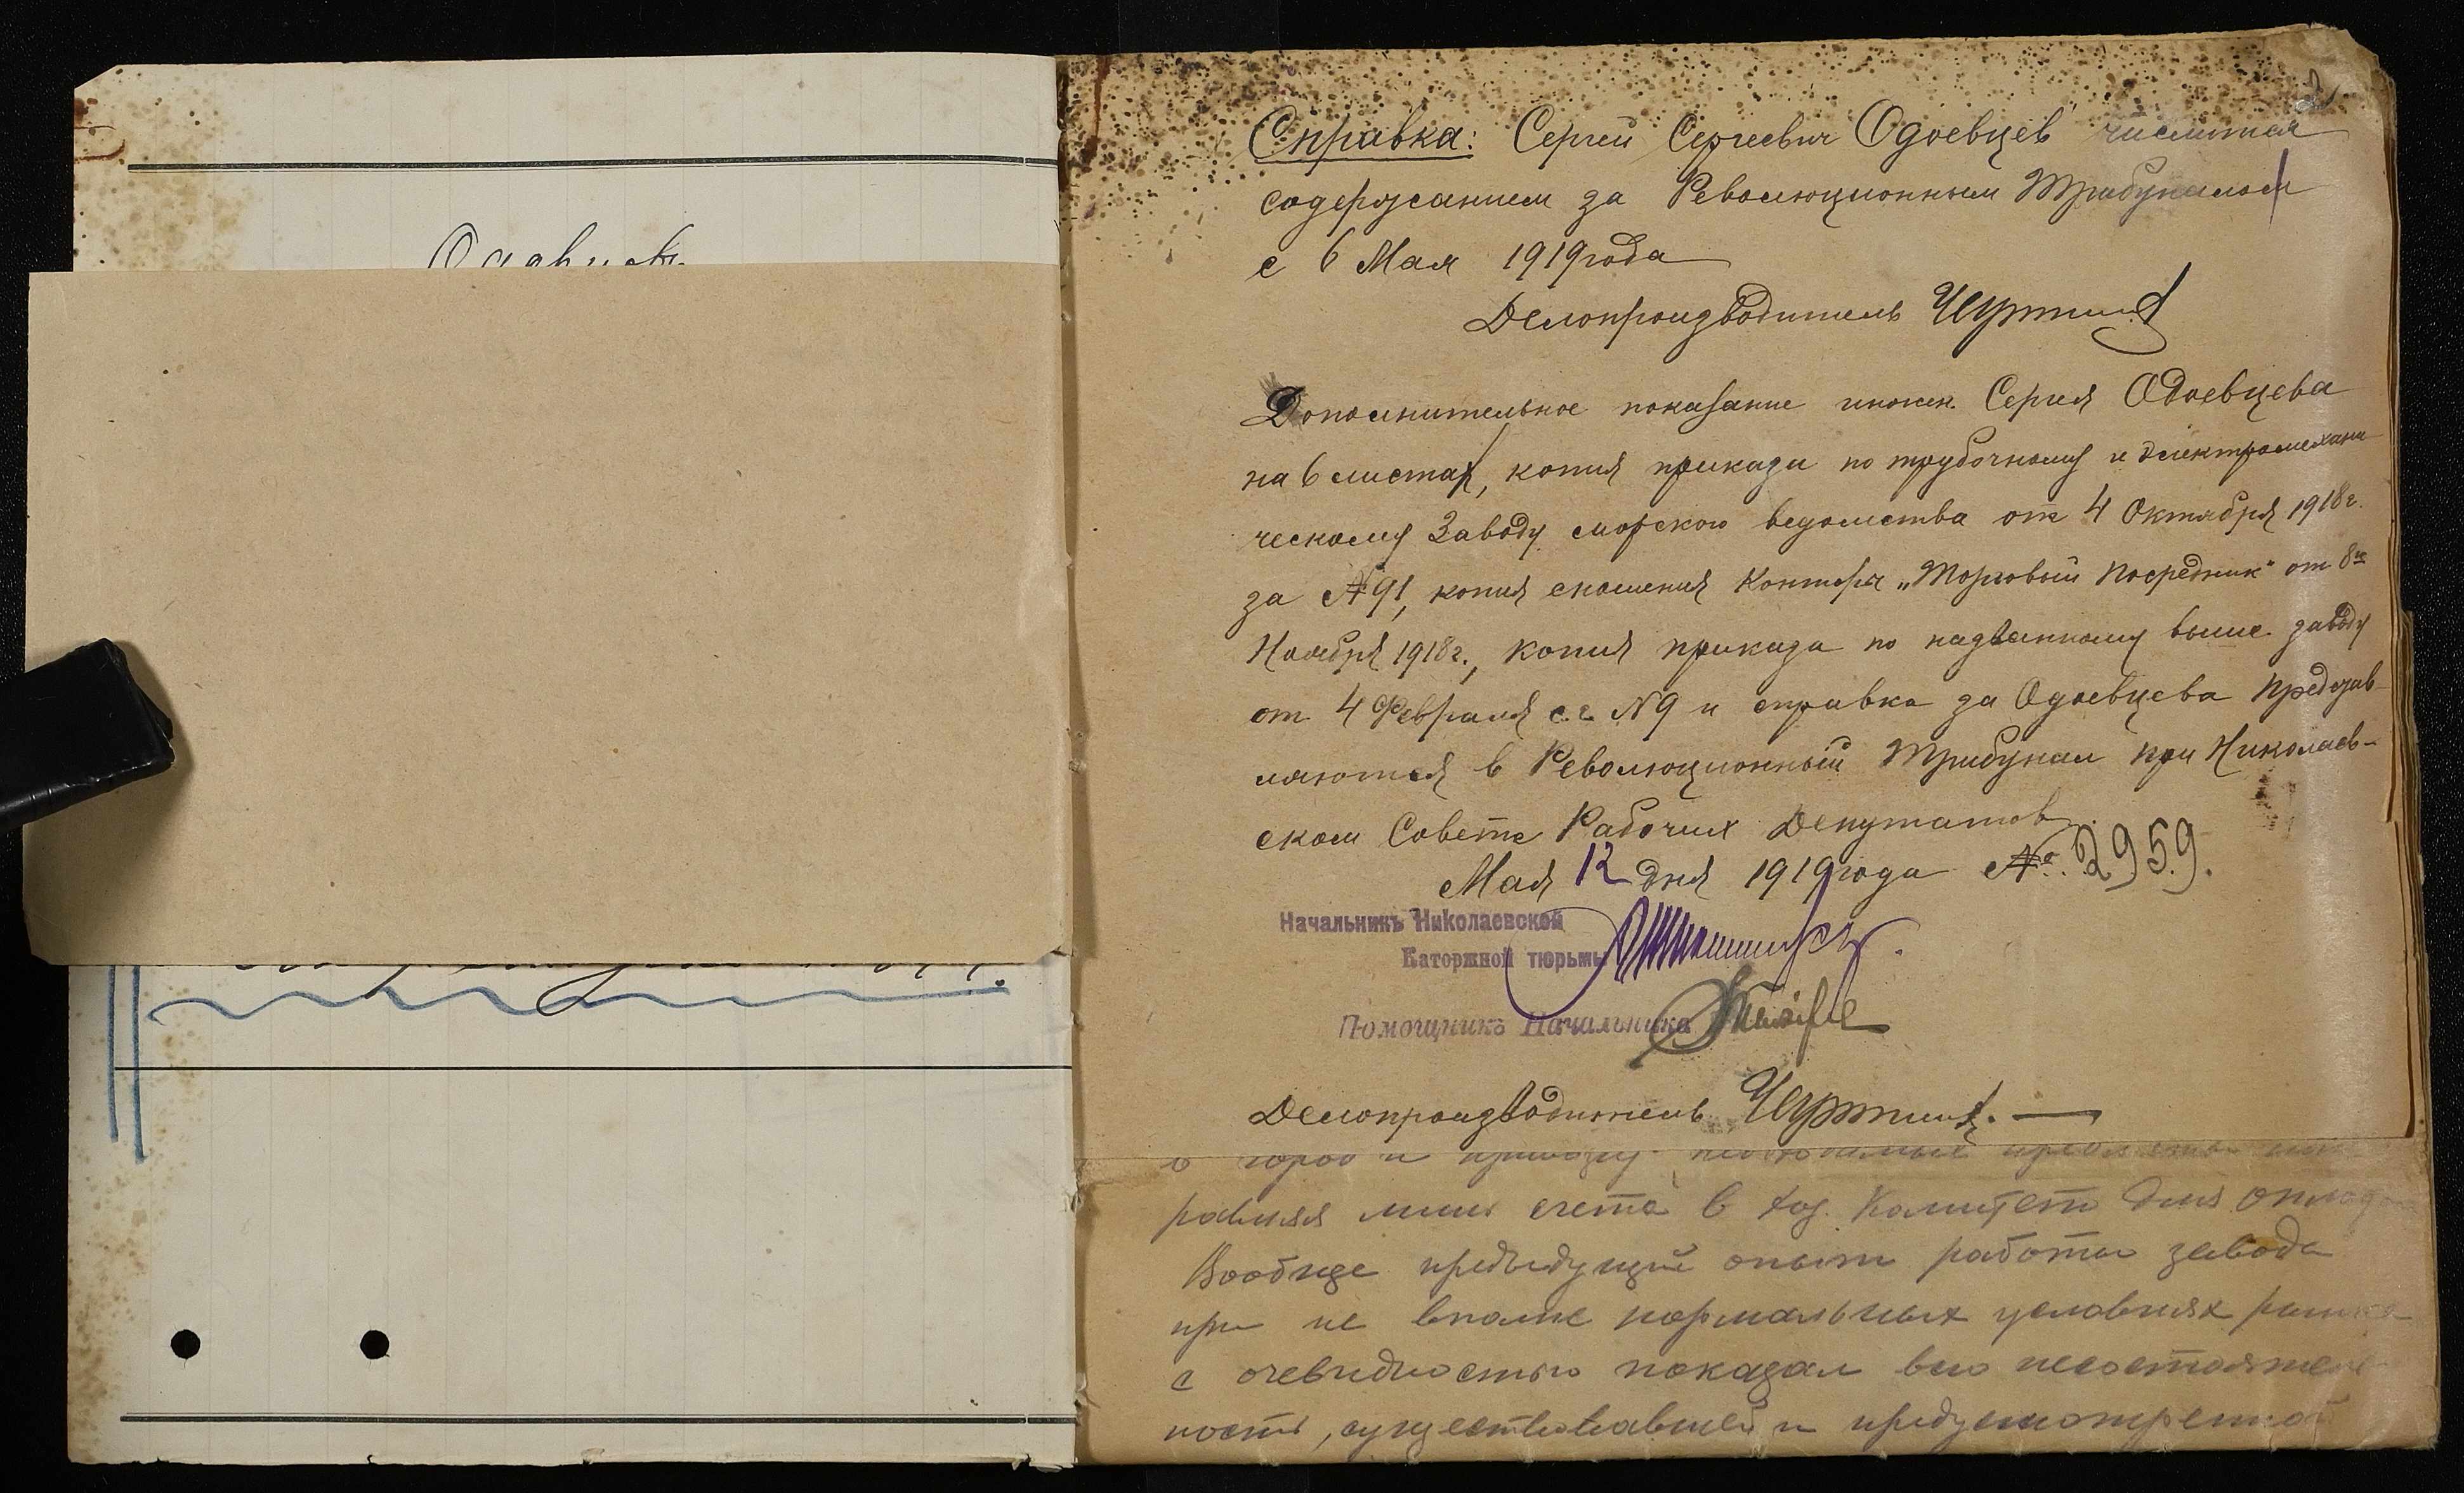 2
Справка: Сергей Сергеевич Одоевцев числится
содержанием за Революционным Трибуналом
с 6 Мая 1919 года
Делопроизводитель
Дополнительное показание инжен. Сергея Одоевцева
на 6 листах, копия приказа по трубочному и электромехани
ческому Заводу морского ведомства от 4 Октября 1918 г.
за № 91, копия сношения Конторы „Торговый Посредник" от 8го
Ноября 1918 г., копия приказа по названному выше заводу
от 4 Февраля с.г. № 9 и справка за Одоевцева представ-
ляются в Революционный Трибунал при Николаев-
ском Совете Рабочих Депутатов.
Мая 12 дня 1919 года №. 2959.
Начальникъ Николаевской
Каторжной тюрьмы
Помощникъ Начальника
Делопроизводитель
в город и необходимые предметы
лишь счета в Комитет для
Вообще предыдущий опыт работы завода
при не вполне нормальных условиях
с очевидностью показал всю несостоятель
ность, существовавшей и предусмотренной